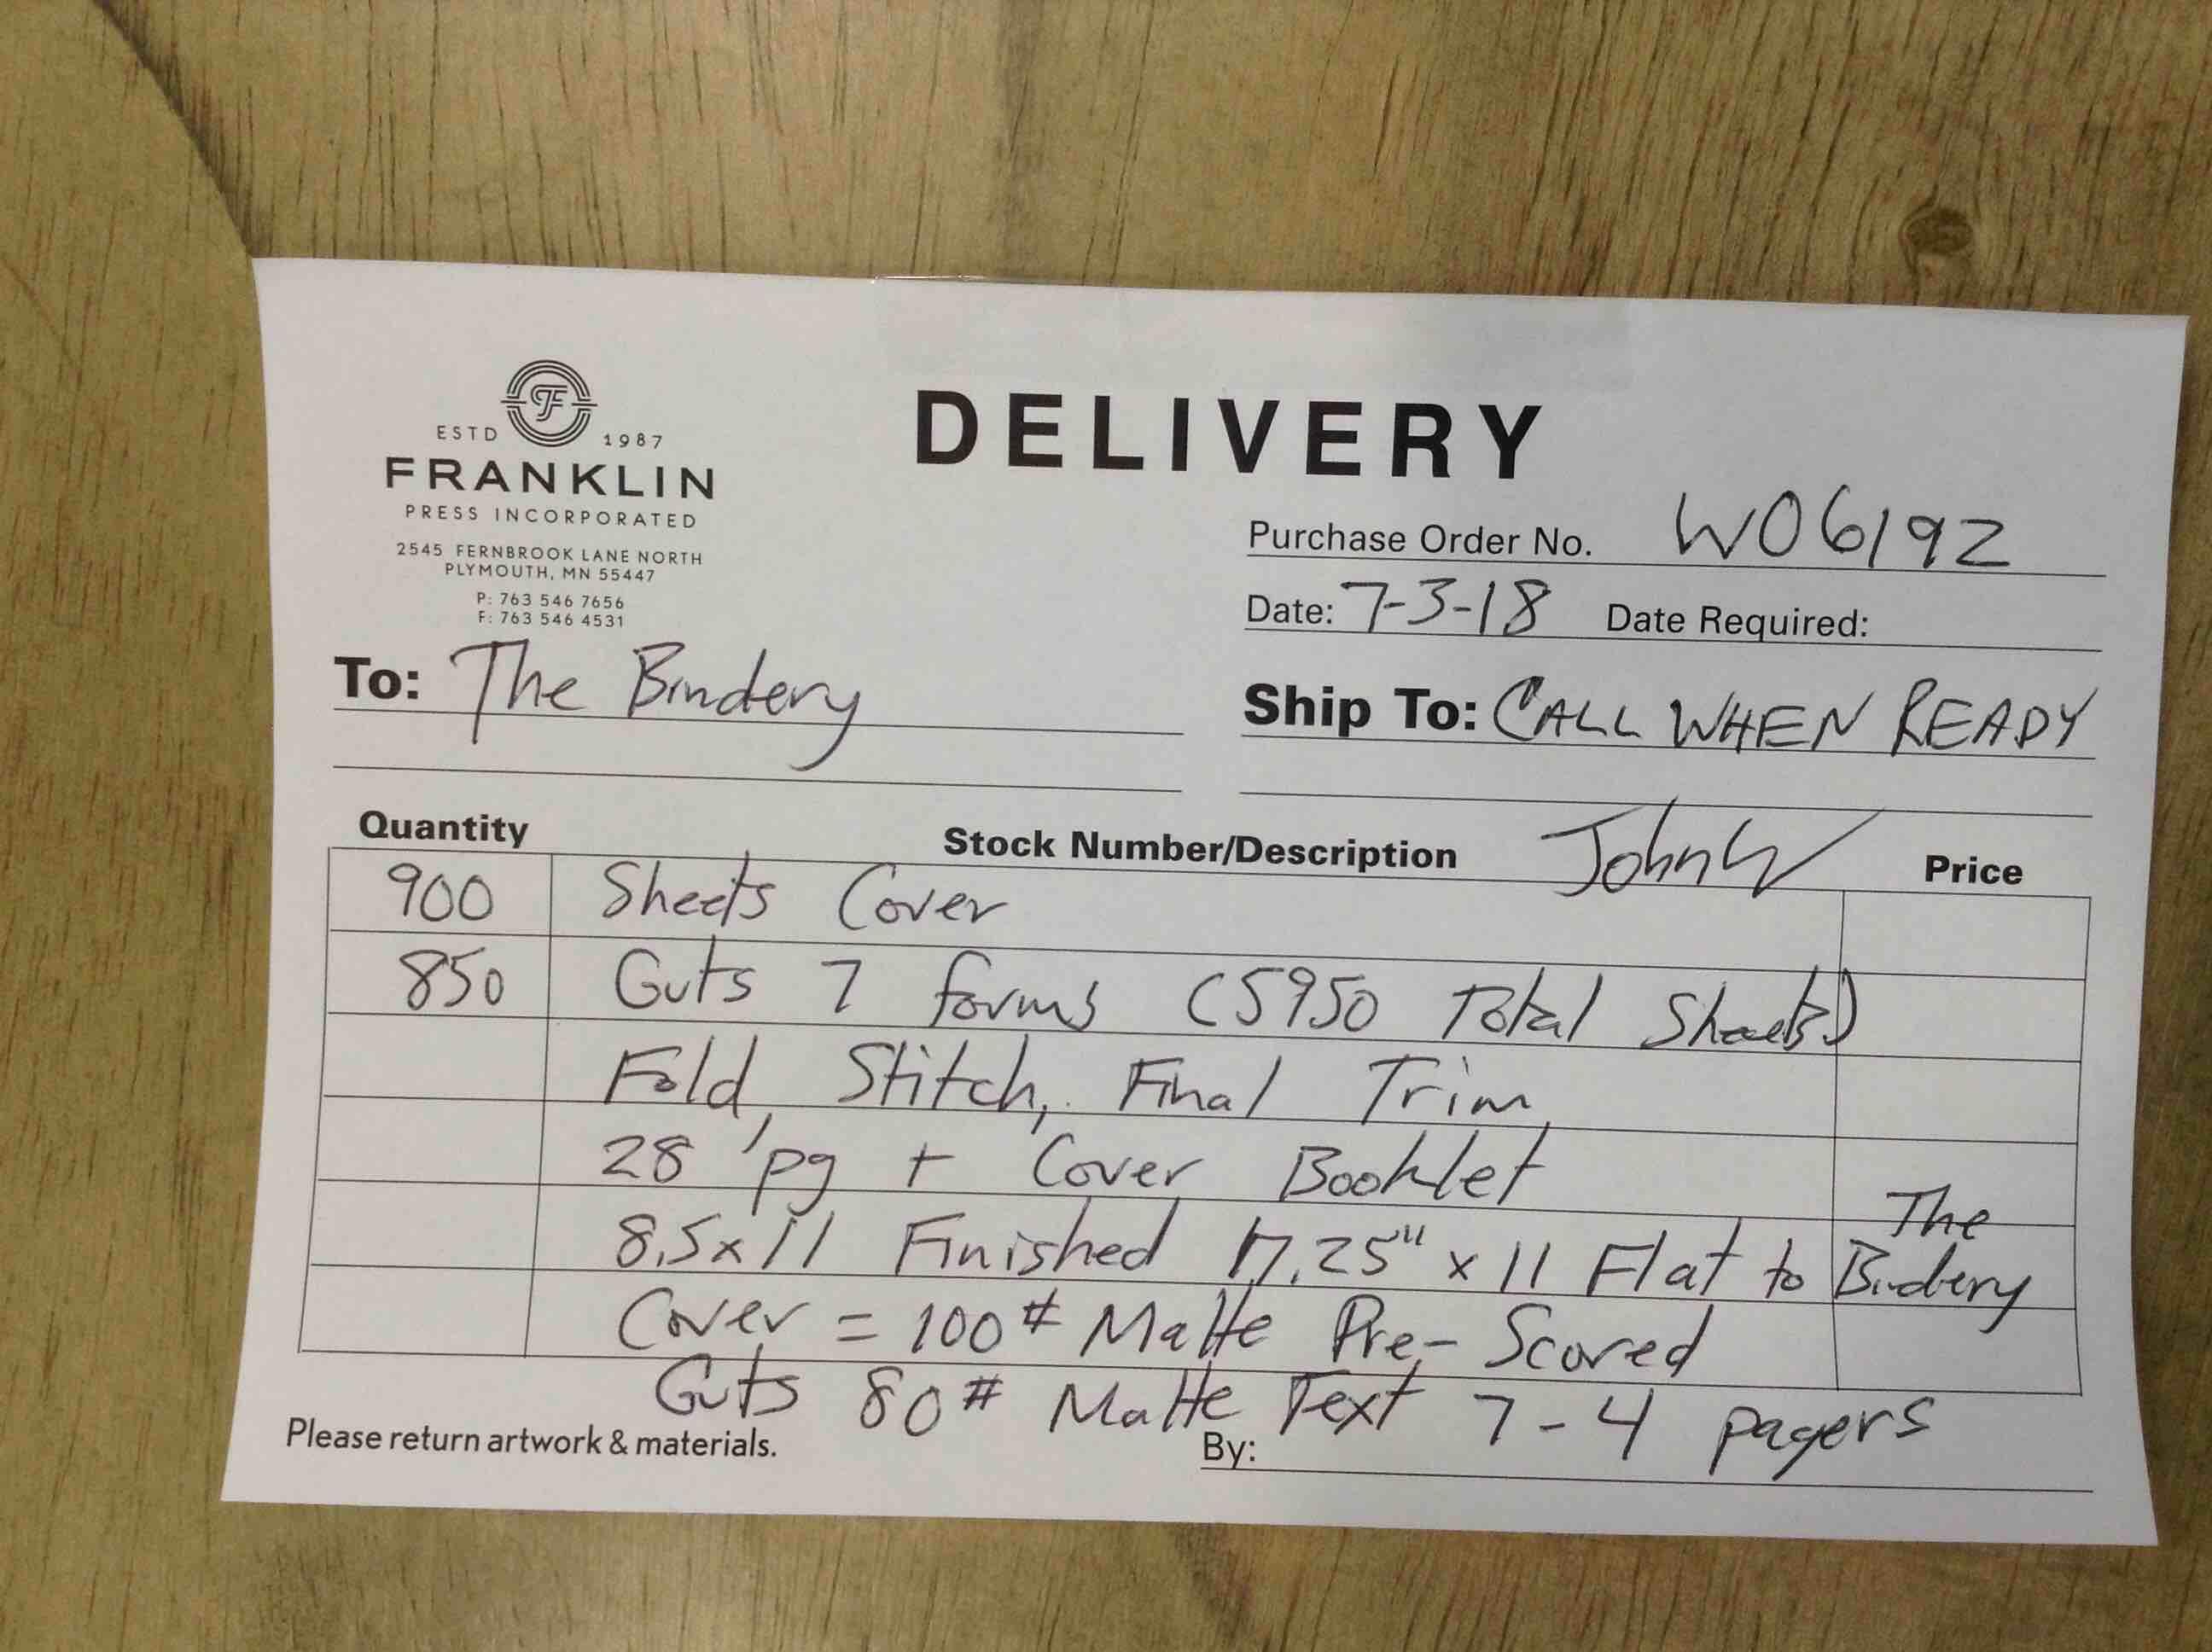 ESTD 1987
FRANKLIN
PRESS INCORPORATED
2545 FERNBROOK LANE NORTH
PLYMOUTH, MN 55447
P: 763 546 7656
F: 763 546 4531
DELIVERY
Purchase Order No. WO6192
Date: 7-3-18 Date Required:
To: The Bindery
Ship To: CALL WHEN READY
Quantity Stock Number/Description John W Price
900 Sheets Cover
850 Guts 7 forms (5950 Total Sheets)
Fold, Stitch, Final Trim
28 pg + Cover Booklet
8.5x11 Finished 17.25" x 11 Flat to The Bindery
Cover = 100# Matte Pre-Scored
Guts 80# Matte Text 7-4 pagers
Please return artwork & materials.
By: